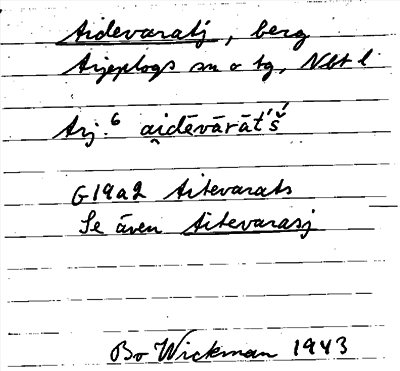 Aidevaratj, berg
Arjeplogs sn o tg, Nbt l.
Arj.⁶ ai̯dēvārāt́š́
G19a2 Aitevarats
Se även Aitevarasj
Bo Wickman 1943